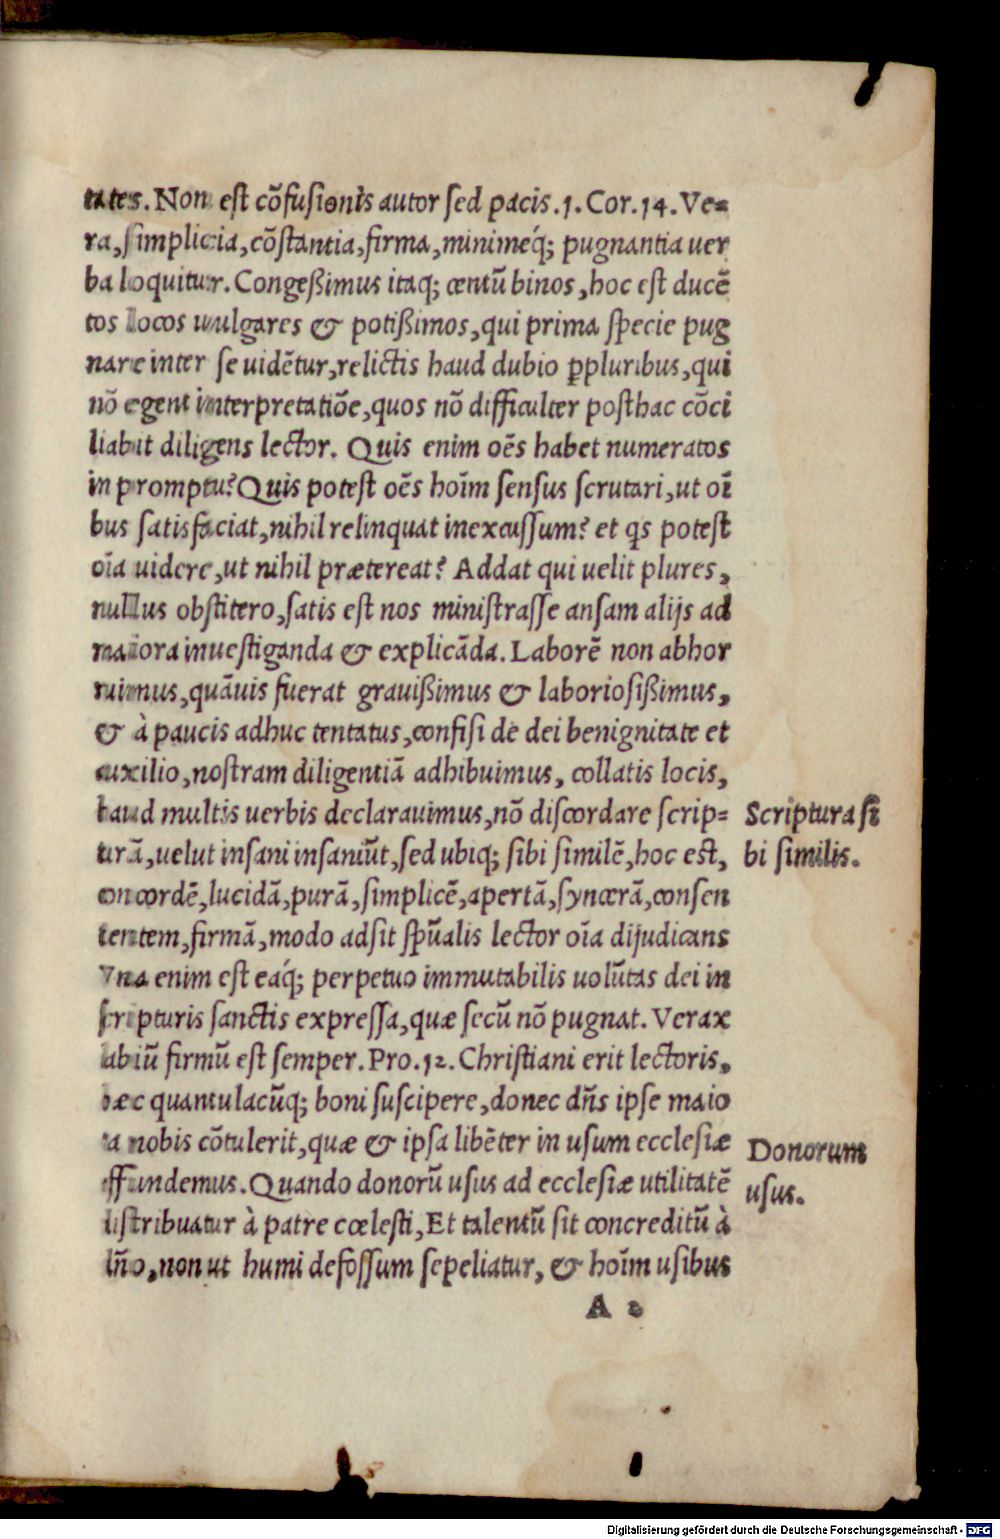 tates. Non est cōfusionis autor sed pacis. 1. Cor. 14. Ve=
ra, simplicia, cōstantia, firma, minimeq́; pugnantia uer
ba loquitur. Congeßimus itaq; centū binos, hoc est ducē
tos locos uulgares & potißimos, qui prima specie pug
nare inter se uidētur, relictis haud dubio ꝑpluribus, qui
nō egent interpretatiōe, quos nō difficulter posthac cōci
liabit diligens lector. Quis enim oēs habet numeratos
in promptu? Quis potest oēs hoīm sensus scrutari, ut oī
bus satisfaciat, nihil relinquat inexcussum? et qs potest
oīa uidere, ut nihil prætereat? Addat qui uelit plures,
nullus obstitero, satis est nos ministrasse ansam alijs ad
maiora inuestiganda & explicāda. Laborē non abhor
ruimus, quāuis fuerat grauißimus & laboriosißimus,
& à paucis adhuc tentatus, confisi de dei benignitate et
auxilio, nostram diligentiā adhibuimus, collatis locis,
haud multis uerbis declarauimus, nō discordare scrip=
turā, uelut insani insaniūt, sed ubiq; sibi similē, hoc est,
concordē, lucidā, purā, simplicē, apertā, syncerā, consen
tentem, firmā, modo adsit spūalis lector oīa dijudicans
Vna enim est eaq́; perpetuo immutabilis uolūtas dei in
scripturis sanctis expressa, quæ secū nō pugnat. Verax
labiū firmū est semper. Pro. 12. Christiani erit lectoris,
hæc quantulacūq; boni suscipere, donec dn̄s ipse maio
ra nobis cōtulerit, quæ & ipsa libēter in usum ecclesiæ
effundemus. Quando donorū usus ad ecclesiæ utilitatē
distribuatur à patre cœlesti, Et talentū sit concreditū à
dn̄o, non ut humi defossum sepeliatur, & hoīm usibus
A 2
Scriptura si
bi similis.
Donorum
usus.
Digitalisierung gefördert durch die Deutsche Forschungsgemeinschaft - DFG